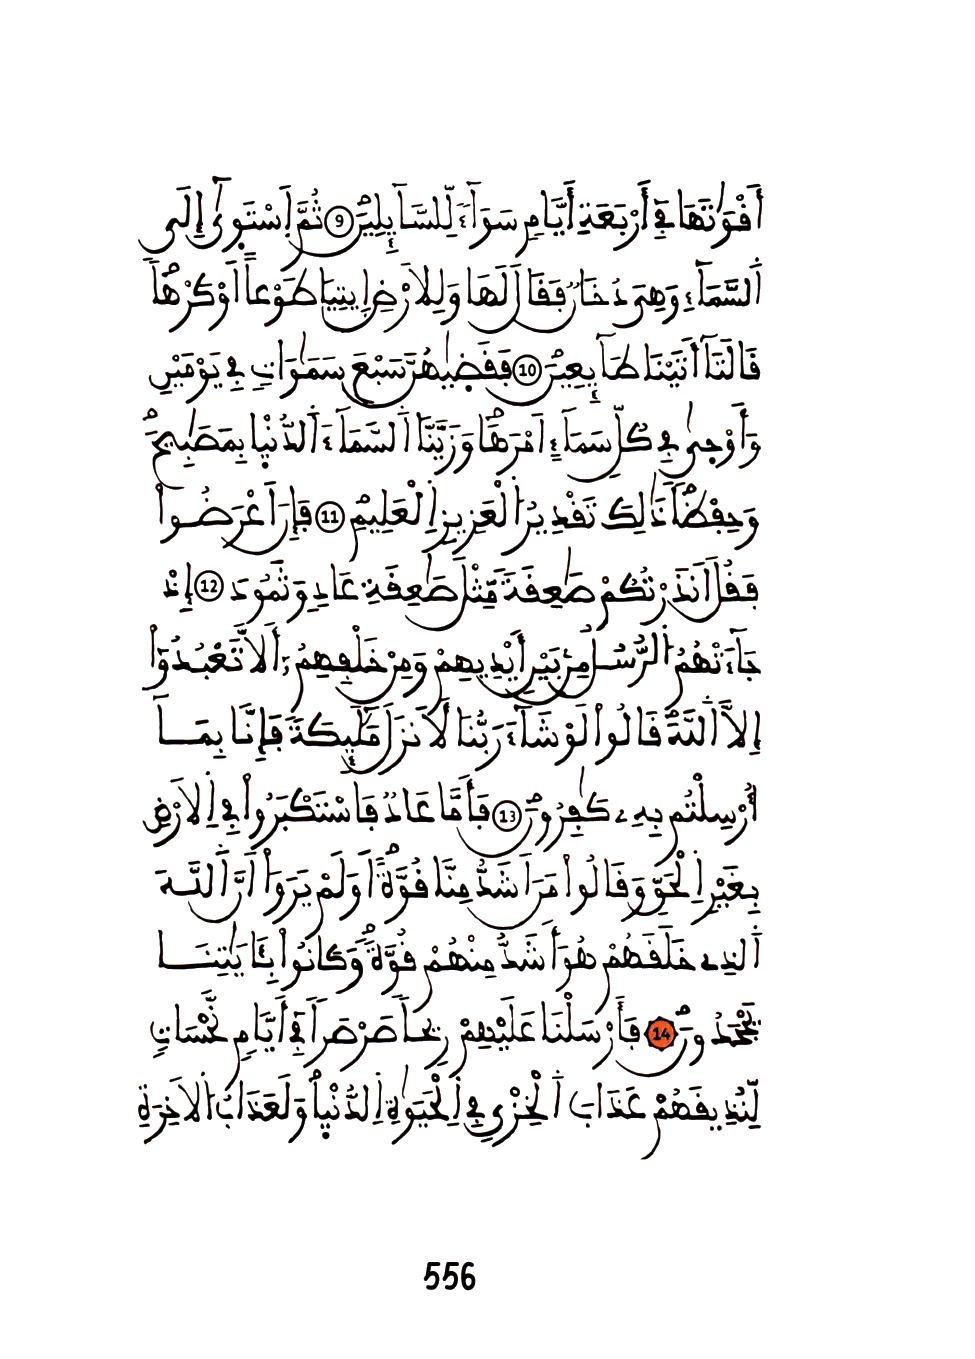 أَقْوَٰتَهَا فِےٓ أَرْبَعَةِ أَيَّامٖ سَوَآءٗ لِّلسَّآئِلِينَۖ 9 ثُمَّ اَ۪سْتَو۪ىٰٓ إِلَى
اَ۬لسَّمَآءِ وَهِىَ دُخَانٞ فَقَالَ لَهَا وَلِلَارْضِ اِ۪يتِيَا طَوْعاً اَوْ كَرْهاٗۖ
قَالَتَآ أَتَيْنَا طَآئِعِينَۖ 10 فَقَض۪ىٰهُنَّ سَبْعَ سَمَٰوَاتٖ فِے يَوْمَيْنِ
وَأَوْح۪ىٰ فِے كُلِّ سَمَآءٍ اَمْرَهَاۖ وَزَيَّنَّا اَ۬لسَّمَآءَ اَ۬لدُّنْي۪ا بِمَصَٰبِيحَۖ
وَحِفْظاٗۖ ذَٰلِكَ تَقْدِيرُ اُ۬لْعَزِيزِ اِ۬لْعَلِيمِۖ 11 فَإِنَ اَعْرَضُواْ
فَقُلَ اَنذَرْتُكُمْ صَٰعِقَةٗ مِّثْلَ صَٰعِقَةِ عَادٖ وَثَمُودَ 12 إِذْ
جَآءَتْهُمُ اُ۬لرُّسُلُ مِنۢ بَيْنِ أَيْدِيهِمْ وَمِنْ خَلْفِهِمُۥٓ أَلَّا تَعْبُدُوٓاْ
إِلَّا اَ۬للَّهَۖ قَالُواْ لَوْ شَآءَ رَبُّنَا لَأَنزَلَ مَلَٰٓئِكَةٗ فَإِنَّا بِمَآ
أُرْسِلْتُم بِهِۦ كَٰفِرُونَۖ 13 فَأَمَّا عَادٞ فَاسْتَكْبَرُواْ فِے اِ۬لَارْضِ
بِغَيْرِ اِ۬لْحَقِّ وَقَالُواْ مَنَ اَشَدُّ مِنَّا قُوَّةًۖ اَوَلَمْ يَرَوَاْ اَنَّ اَ۬للَّهَ
اَ۬لذِے خَلَقَهُمْ هُوَ أَشَدُّ مِنْهُمْ قُوَّةٗۖ وَكَانُواْ بِـَٔايَٰتِنَا
يَجْحَدُونَۖ 14 فَأَرْسَلْنَا عَلَيْهِمْ رِيحاٗ صَرْصَراٗ فِےٓ أَيَّامٖ نَّحْسَاتٖ
لِّنُذِيقَهُمْ عَذَابَ اَ۬لْخِزْيِ فِے اِ۬لْحَيَوٰةِ اِ۬لدُّنْي۪اۖ وَلَعَذَابُ اُ۬لَاخِرَةِ
556